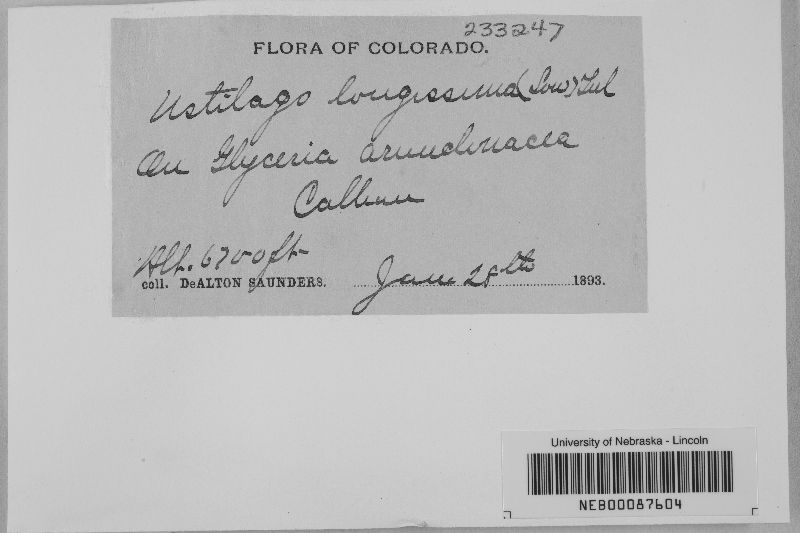 233247
FLORA OF COLORADO.
Ustilago longissima (Sow) Tul
On Glyceria arundinacea
Calhan
Alt. 6700 ft
coll. DeALTON SAUNDERS. June 28th 1893.
University of Nebraska - Lincoln
NEB00087604